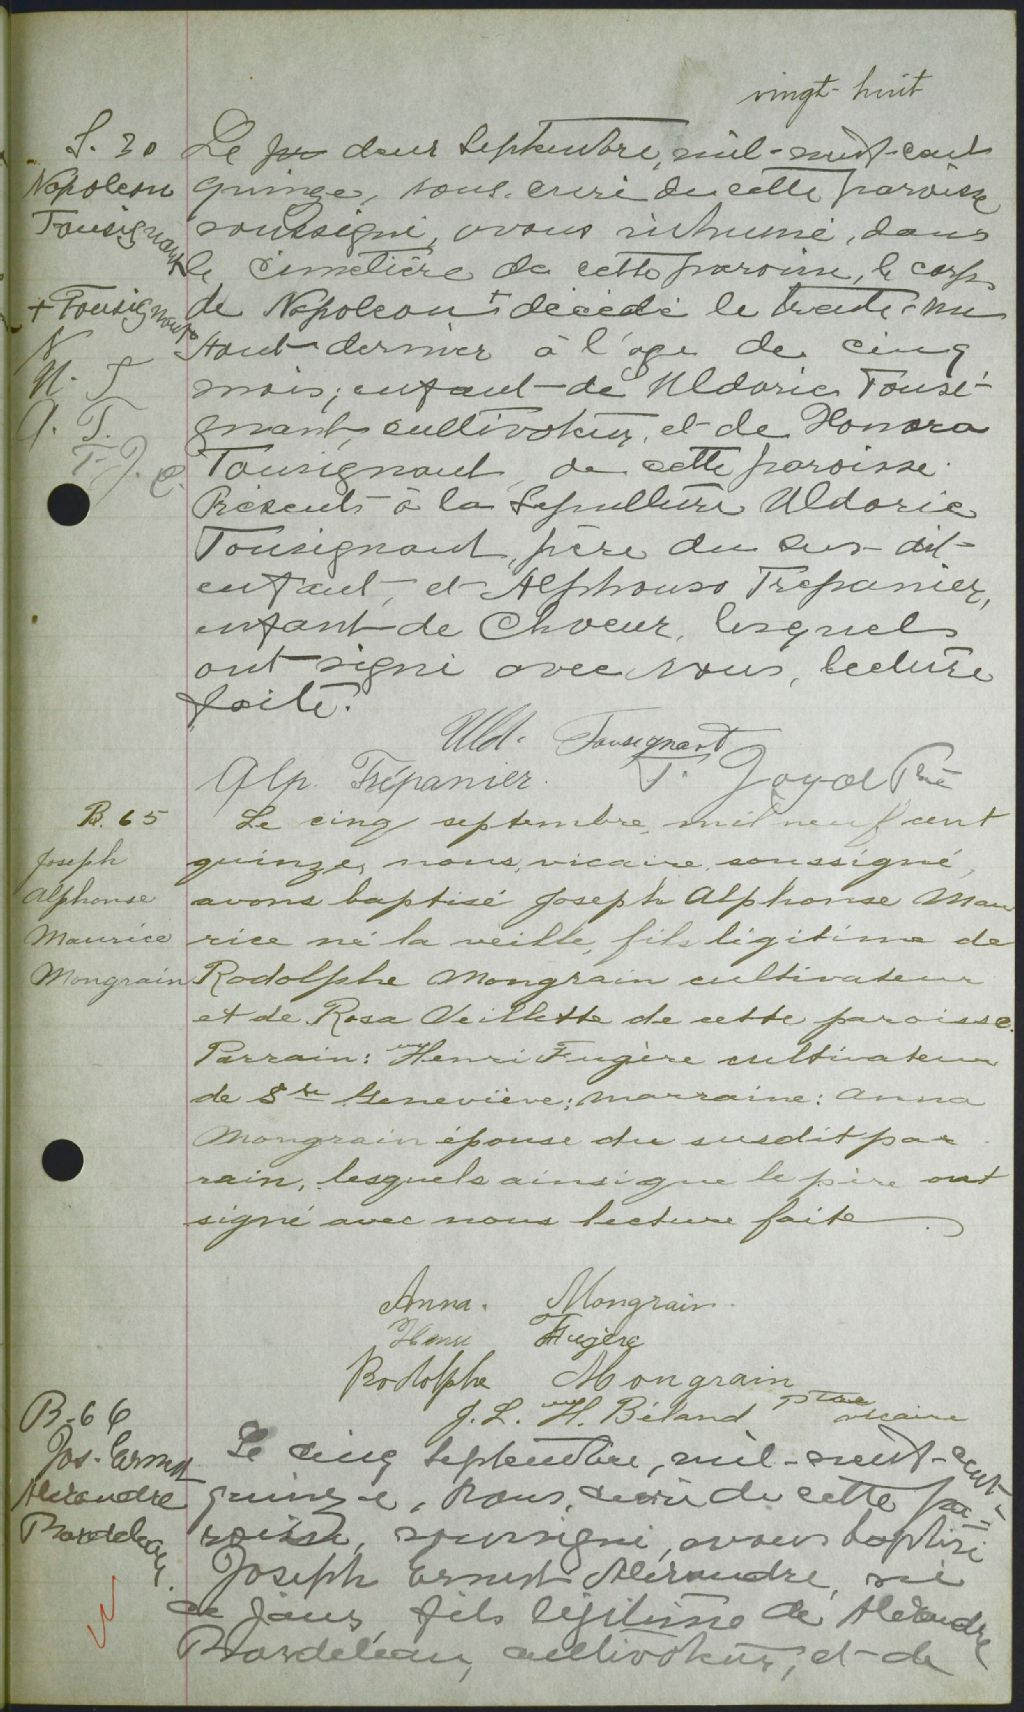 vingt-huit
S. 20
Napoleon
Tousignant
Le deux Septembre, mil-neuf-cent
quinze, nous curé de cette paroisse
soussigné, avons inhumé, dans
le cimetière de cette paroisse, le corps
de Napoleon + décédé le trente-un
Aout dernier à l'age de cinq
mois, enfant de Uldoric Tousi-
gnant, cultivateur, et de Honora
Tousignant, de cette paroisse.
Présents à la Sepulture Uldoric
Tousignant, père du sus-dit
enfant, et Alphonse Trepanier,
enfant de Choeur, lesquels
ont signé avec nous, lecture
faite.
+ Tousignant
N
U. T
A. T.
T. J. C.
Uld. Tousignant
Alp. Trépanier. T. Joyal Ptre
B. 65
Joseph
Alphonse
Maurice
Mongrain
Le cinq septembre, mil neuf cent
quinze, nous, vicaire soussigné,
avons baptisé Joseph Alphonse Mau
rice né la veille, fils légitime de
Rodolphe Mongrain cultivateur
et de Rosa Veillette de cette paroisse.
Parrain: Henri Fugère cultivateur
de Ste Geneviève; marraine: Anna
Mongrain épouse du susdit par
rain, lesquels ainsi que le père ont
signé avec nous lecture faite.
Anna. Mongrain.
Henri Fugère
Rodolphe Mongrain
J. L. H. Béland Ptre vicaire
B-66
Jos-Ernest
Alexandre
Bordeleau.
Le cinq Septembre, mil-neuf-cent-
quinze, Nous, curé de cette pa-
roisse, soussigné, avons baptisé
Joseph Ernest Alexandre, né
ce jour, fils légitime de Alexandre
Bordeleau, cultivateur, et de